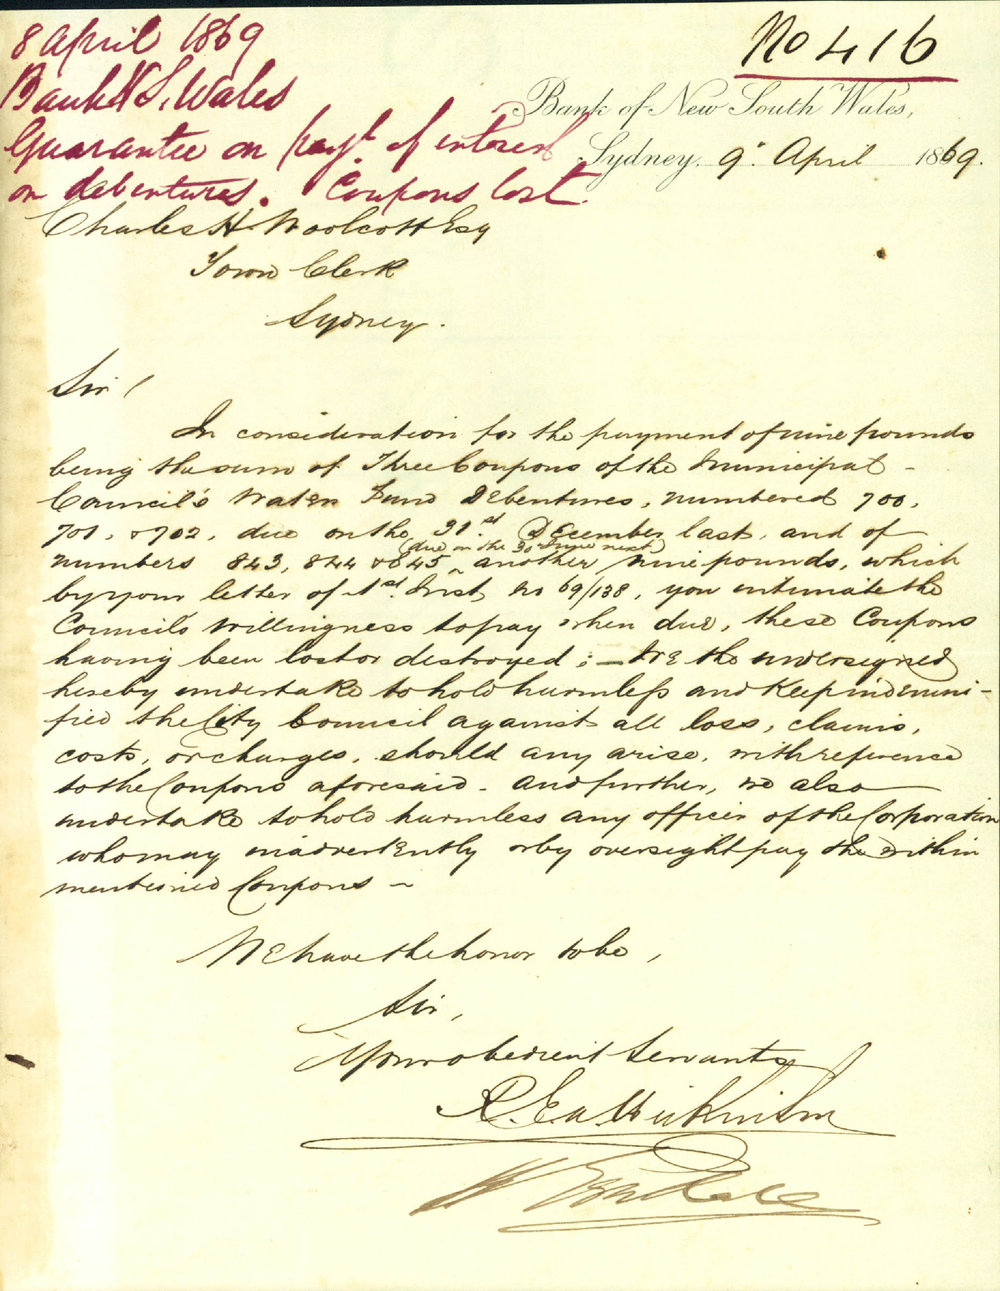 8 April 1869
No 416
Bank N. S. Wales
Guarantee on payt. of interest
on debentures. Coupons lost.
Bank of New South Wales,
Sydney, 9. April 1869.
Charles H. Woolcott Esq
Town Clerk
Sydney.
Sir /
In consideration for the payment of nine pounds
being the sum of Three Coupons of the Municipal
Council's Water Fund Debentures, numbered 700,
701, & 702, due on the 31st. December last, and of
(due on the 30 June next)
numbers 843, 844 & 845 another nine pounds, which
by your letter of 1st. Inst, no 69/138, you intimate the
Council's willingness to pay when due, these Coupons
having been lost or destroyed; — We the undersigned
hereby undertake to hold harmless and Keep indemni-
fied the City Council against all loss, claims,
costs, or charges, should any arise, with reference
to the Coupons aforesaid - and further, we also
undertake to hold harmless any officer of the Corporation
who may inadvertently or by oversight pay the within
mentioned Coupons ~
We have the honor to be,
Sir,
Your obedient Servants
R.
W